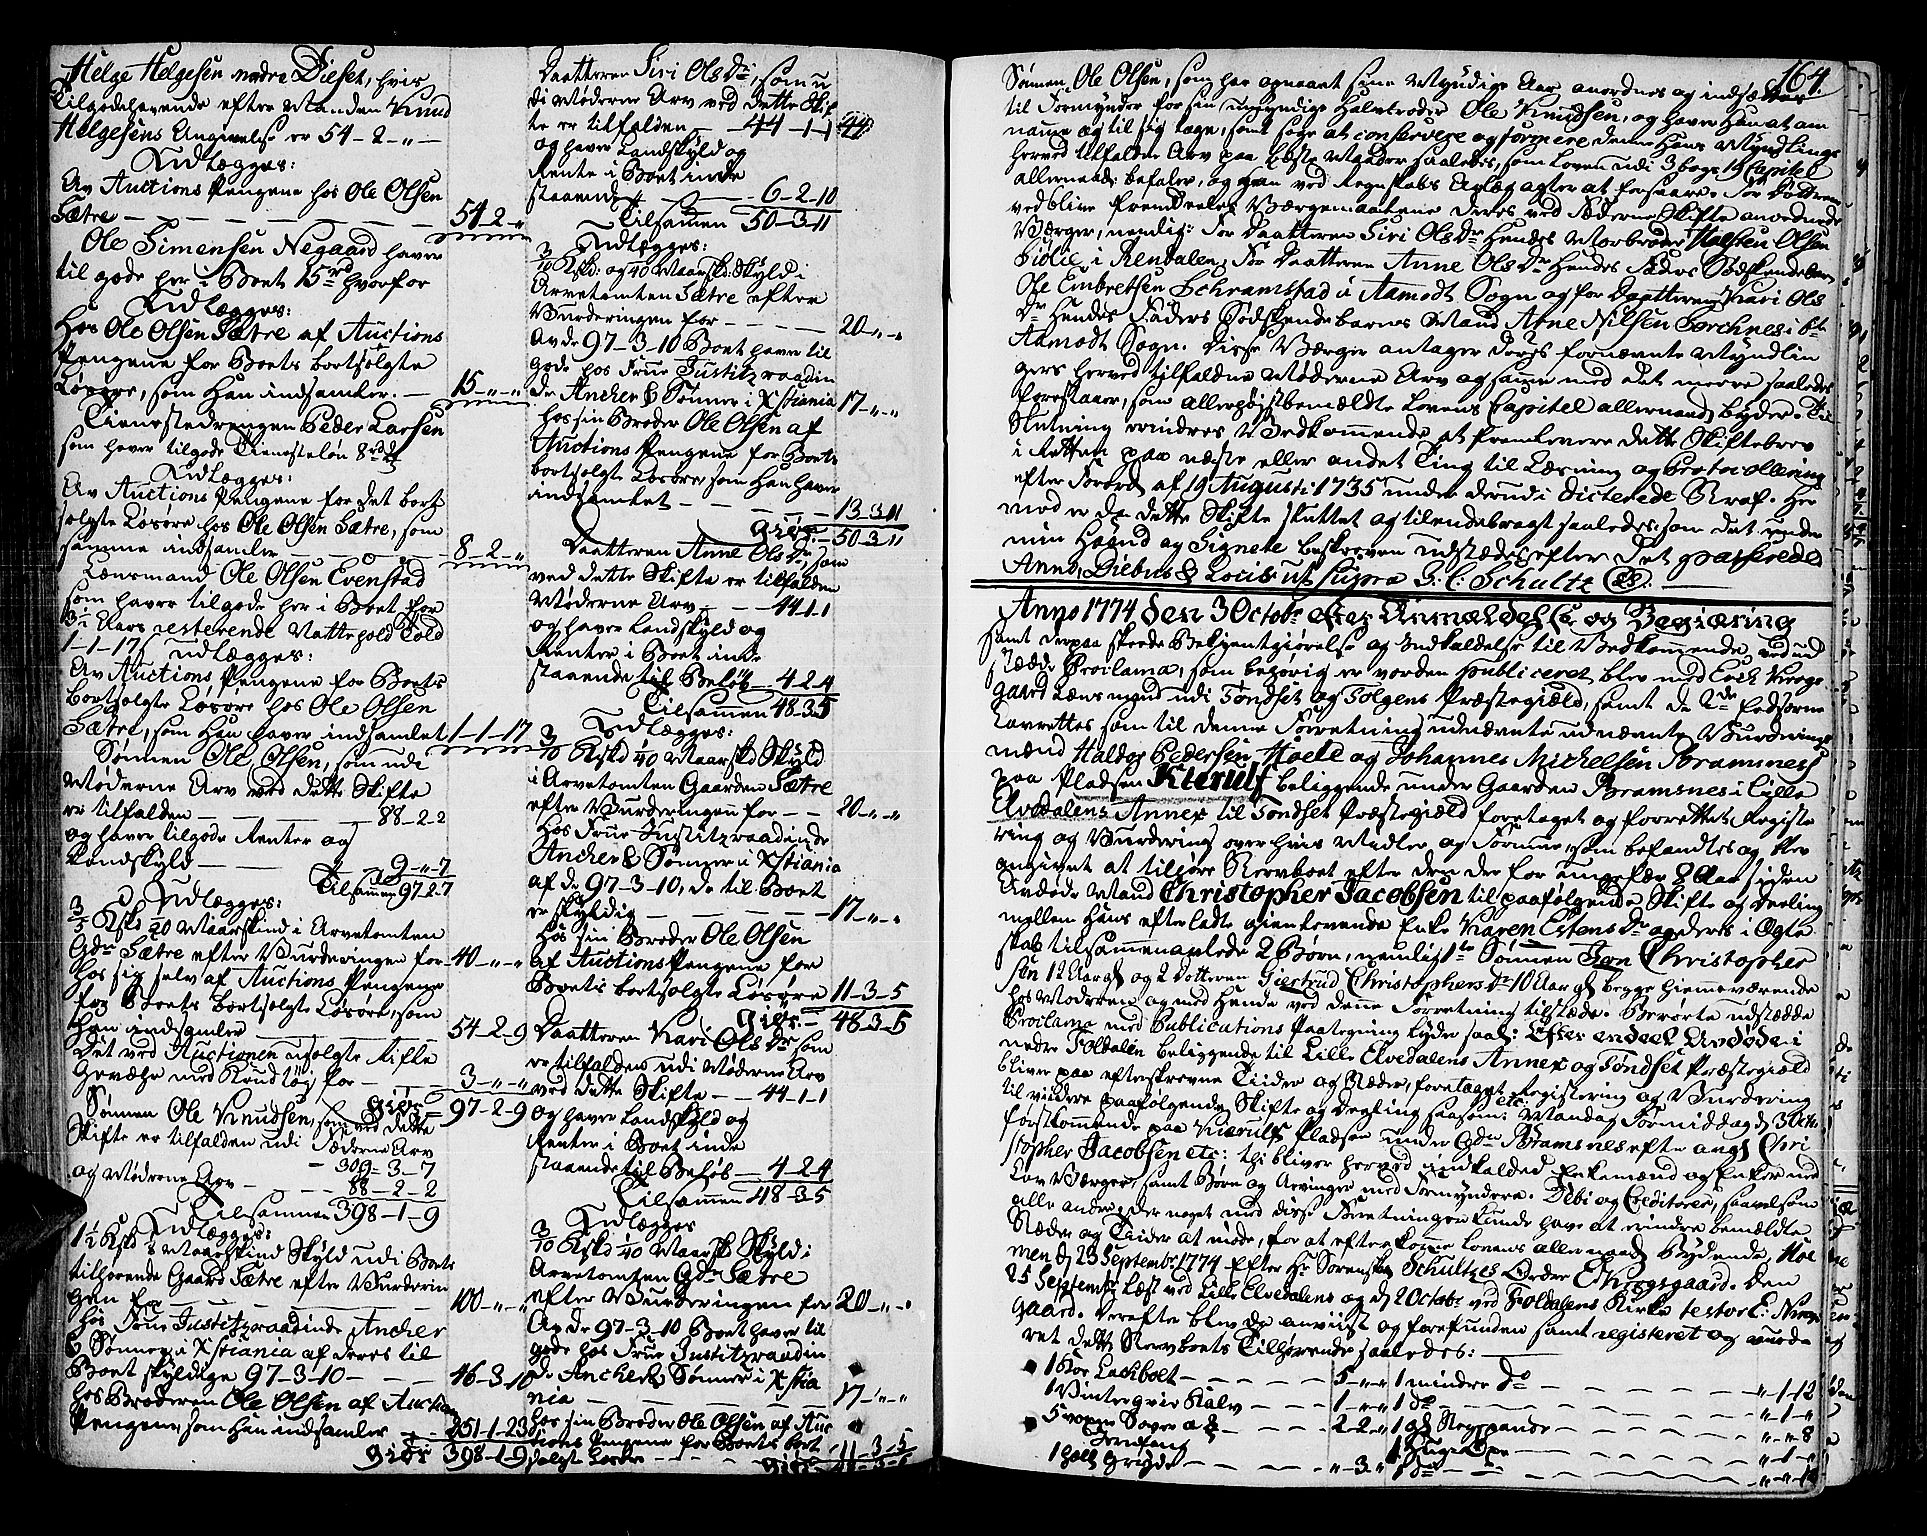 Helge Helgesen nedre Dieset, hvis
Tilgodehavende efter Manden Knud
Helgesens Angivelse er 54-2-„-
Udlægges:
Av Auctions Pengene hos Ole Olsen
Sætre - - - 54-2-„
Ole Simensen Negaard haver
til gode her i Boet 15 rd hvorfor
Udlægges:
Hos Ole Olsen Sætre af Auctions
Pengene for Boets bortsolgte
Løsøre, som Han indsamler. - 15-„-„
Tienestedrengen Peder Larsen
som haver tilgode Tienesteløn 8 rd 2
Udlægges:
Av Auctions Pengene for det bort
solgte Løsøre hos Ole Olsen Sætre, som
samme indsamler - - 8-2-„
Lænsmand Ole Olsen Evenstad
som haver tilgode her i Boet for
3 Aars resterende
1-1-17 Udlægges:
Av Auctions Pengene for Boets
bortsolgte Løsøre hos Ole Olsen
Sætre, som Han haver indsamlet 1-1-17
Sønnen Ole Olsen, som udi
Møderne Arv ved dette Skifte
er tilfalden - - 88-2-2
og haver tilgode Renter og
Landskyld - - 9-„-7
Tilsammen 97-2-7
Udlægges:
i Arvetomten
Gdn Sætre efter Vurderingen for 40-„-„
hos sig selv af Auctions Pengene
for Boets bortsolgte Løsøre, som
Han indsamler - 54-2-9
Det ved Auctionen usolgte Rifle
Geværh med Krudtøj for - - 3-„-„
Giør - 97-2-9
Sønnen Ole Knudsen, som ved dette
Skifte er tilfalden udi Fæderne Arv
309-3-7
og Møderne Arv - - 88-2-2
Tilsammen 398-1-9
Udlægges:
Maarskind Skyld udi Boets
tilhørende Gaard Sætre efter Vurderin
gen for - - 100-„-„
hos Frue Justitzraadinde Ancher
& Sønner i Xstiania af deres til
Boet skyldige 97-3-10 - 46-3-10
hos Broderen Ole Olsen af Auction
Pengene, som Han indsamler 251-1-23
Giør 398-1-9
Daatteren Siri Ols Dr, som u
di Møderne Arv ved dette Skif
te er tilfalden - 44-1-1
og haver Landskyld og
Rente i Boet inde
staaende - - 6-2-10
Tilsamen 50-3-11
Udlægges:
3/10 Kskd: og 1/40 Maarskd: Skyld i
Arvetomten Sætre efter
Vurderingen for - - 20-„-„
Av de 97-3-10 Boet haver til
gode hos Frue Justitzraadin
de Ancher & Sønner i Xstiania 17-„-„
hos sin Broder Ole Olsen af
Auctions Pengene for Boets
bortsolgte Løsøre, som Han haver
indsamlet - - - 13-3-11
Giør - 50-3-11
Daatteren Anne Ols Dr, som
ved dette Skifte er tilfalden
Møderne Arv - - 44-1-1
og haver Landskyld og
Renter i Boet inde
staaende til Beløb - 4-2-4
Tilsammen 48-3-5
Udlægges:
3/10 Kskd 1/40 Maarskd Skyld
i Arvetomten Gaarden Sætre
efter Vurderingen for - - 20-„-„
hos Frue Justitzraadinde
Ancher & Sønner i Xstiania
af de 97-3-10, de til Boet
er skyldig - - - 17-„-„
hos sin Broder Ole Olsen
af Auctions Pengene for
Boets bortsolgte Løsøre 11-3-5
Giør - 48-3-5
Daatteren Kari Ols Dr som
er tilfalden udi Møderne Arv
ved dette Skifte - - 44-1-1
og haver Landskyld og
Renter i Boet inde
staaende til Beløb - 4-2-4
Tilsammen 48-3-5
Udlægges
3/10 Kskd 1/40 Maarsk Skyld i
Arvetomten Gdn Sætre
efter Vurderingen for 20-„-„
Av de 97-3-10 Boet haver til
gode hos Frue Justitzraadin
de Ancher & Sønner i Xstia
nia - - 17-„-„
hos sin Broder Ole Olsen af Auc
tions Pengene for Boets bort
solgte Løsøre - - 11-3-5
164.
Sønnen Ole Olsen, som har opnaaet sine Myndige Aar anordnes og indsættes
til Formynder for sin umyndige Halvbroder Ole Knudsen, og haver Han at an
namme og til sig tage, samt søge at conservere og formere denne Hans Myndlings
herved tilfaldne Arv paa bæste Maader saaledes, som Loven udi 3 bogs 19 Capitel
allernaad: befaler, og Han ved Regnskabs Aflæg agter at forsvare. For Døttrene
vedbliver fremdeeles Værgemaalene deres ved Fæderne Skifte anordnede
Værger, nemlig: For Daatteren Siri Ols Dr Hendes Morbroder Halsten Olsen
i Rendalen, For Daatteren Anne Ols Dr Hendes Faders Sødskendebarn
Ole Embretsen Schramstad i Aamodt Sogn og for Daatteren Kari Ols
Dr Hendes Faders Sødskendebarns Mand Arne Nilsen i bte
Aamodt Sogn. Disse Værger antager deres fornævnte Myndlin
gers herved tilfaldne Møderne Arv og samme med det meere saaledes
forestaaer, som allerhøjstbemældte Lovens Capitel allernaad: byder. Til
Slutning erindres Vedkommende at fremlevere dette Skiftebrev
i Retten paa næste eller andet Ting til Læsning og Protocollering
efter Forord: af 19 Augusti 1735 under derudi dicterede Straf. Her
med er da dette Skifte sluttet og tilendebragt saaledes, som det under
min Haand og Signete beskreven udstædes efter Det passerede
Anno, Diebus & Locis ut supra J. C. Schultz
Anno 1774 den 3 Octobr efter Anmældelse og Begiæring
samt derpaa skeede Bekiendtgiørelse og Indkaldelse til Vedkommende ved ud
stædde Proclama, som behørig er vorden publiceret, blev med Erik Krogs
gaard Lænsmand udi Tøndset og Tolgens Præstegiæld, samt de 2de Eedsorne
Laurettes som til denne Forretning udnævnte udnævnte Vurderings
mænd Haldor Pedersen Hoell og Johannes Michelsen Bramsness
paa Pladsen Kierulf beliggende under Gaarden Bramsnes i Lille
Elvedalens Annex til Tøndset Præstegiæld foretaget og forrettet Registe
ring og Vurdering over hvis Midler og Formue, som befandtes og blev
angivet at tilhøre Stervboet efter den der for ungefær 8 Aar siden
Avdøde Mand Christopher Jacobsen til paafølgende Skifte og Deeling
mellem Hans efterladte gienlevende Enke Karen Estens Dr og deris i Ægte
skab tilsammenavlede 2 Børn, nemlig 1te Sønnen Jon Christopher
sen 12 Aar gl og 2 Dotteren Giertrud Christophers Dr 10 Aar gl begge hiemmeværende
hos Moderen og med Hende ved denne Forretning tilstæde. Berørte udstædde
Proclama med Publications Paategning lyder saal: Efter endeel Avdøde i
nedre Foldalen beliggende til Lille Elvedalens Annex og Tøndset Præstegiæld
bliver paa efterskrevne Tiider og Stæder, foretaget Registering og Vurdering
til videre paafølgende Skifte og Deeling saasom: etc: Mandag Formiddag d 3 Octr
førstkommende paa Kierulfs Pladsen under Gdn Bramsnes efter angl Chri
stopher Jacobsen etc: thi bliver herved indkalded Enkemænd og Enker med
Lav Værger, samt Børn og Arvinger med Formyndere. Debi og Creditorer, saavelsom
alle andre, der noget med disse Forretninger kunde have at erindre bemældte
Stæder og Tiider at møde, for at efterkomme Lovens allernaad: Bydende. Hoe
men d 23 Septembr 1774 Efter Hr Sorenskr Schultzes Ordre E Krogsgaard. Den
25 Septembr Læst ved Lille Elvedalens og d 2 Octobr ved Foldalens Kirke testor E: Krogs
gaard. Derefter blev da anviist og forefunden samt registeret og vurde
ret dette Stervboets Tilhørende saaledes:
1 Koe Lackbolt - - - 5-„-„ 1 mindre do - - - „-1-12
1 Vinter gvie Kalv - - 1-„-„ 1 do - - - „-1-„
5 voxne Sover a 2 - - 2-2-„ 1 gl Stegpande - - - „-„-8
Jernfang 1 Huge Øxe - - - „-1-„
1 Gryde - - „-3-„ 1 do